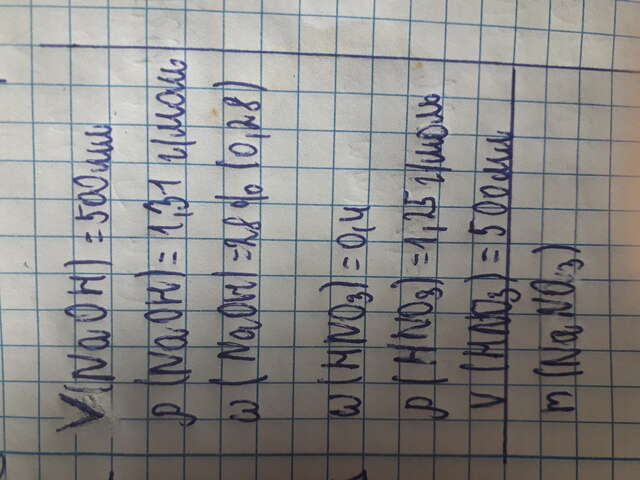 V(NaOH)=500мл
ρ(NaOH)=1,31 г/моль
ω(NaOH)=28% (0,28)
ω(HNO₃)=0,4
ρ(HNO₃)=1,25 г/моль
V(HNO₃)=500мл
m(NaNO₃)